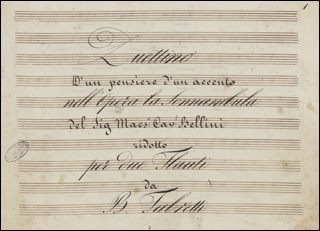 1
Duettino
D'un pensiero d'un accento
nell'Opera la Sonnambula
del Sig Maes° Cav° Bellini
ridotto
per due Flauti
da
B. Fabretti